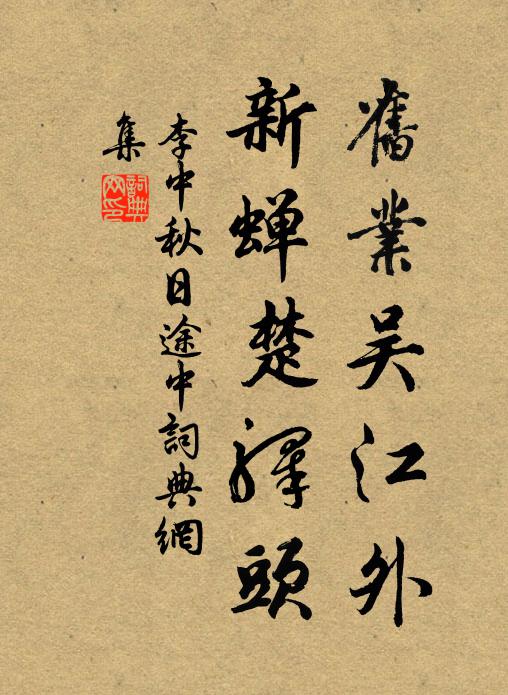 舊業吴江外
新蝉楚驛頭
李中秋日途中詞典網
集
詞典
网印